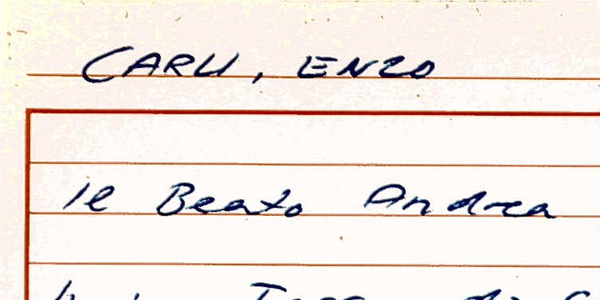 CARLI, ENZO
il Beato Andrea